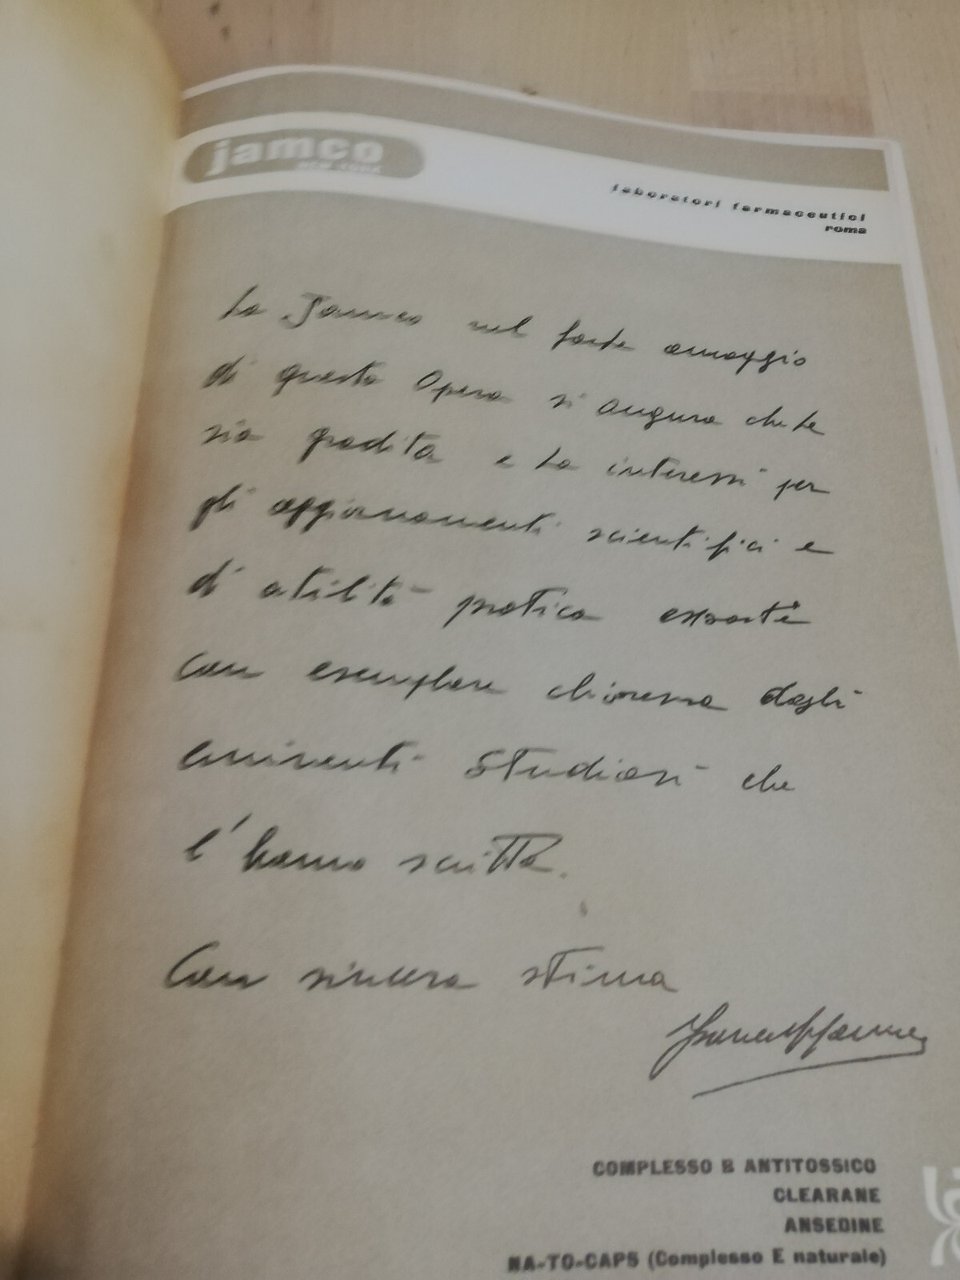 jamco
NEW YORK
laboratori farmaceutici
roma
La Jamco nel farle omaggio
di questa Opera si augura che Le
sia gradita e La interessi per
gli aggiornamenti scientifici e
di utilità pratica esposti
con esemplare chiarezza dagli
eminenti Studiosi che
l'hanno scritta.
Con sincera stima
COMPLESSO B ANTITOSSICO
CLEARANE
ANSEDINE
NA-TO-CAPS (Complesso E naturale)